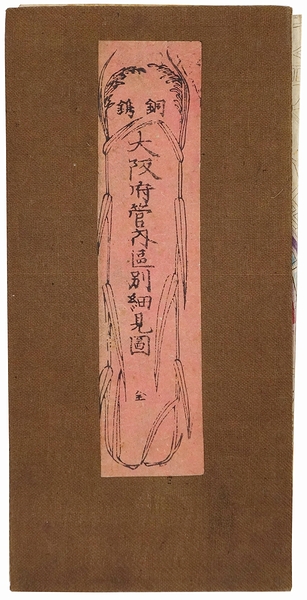 銅鐫
大阪府管内區別細見圖
全